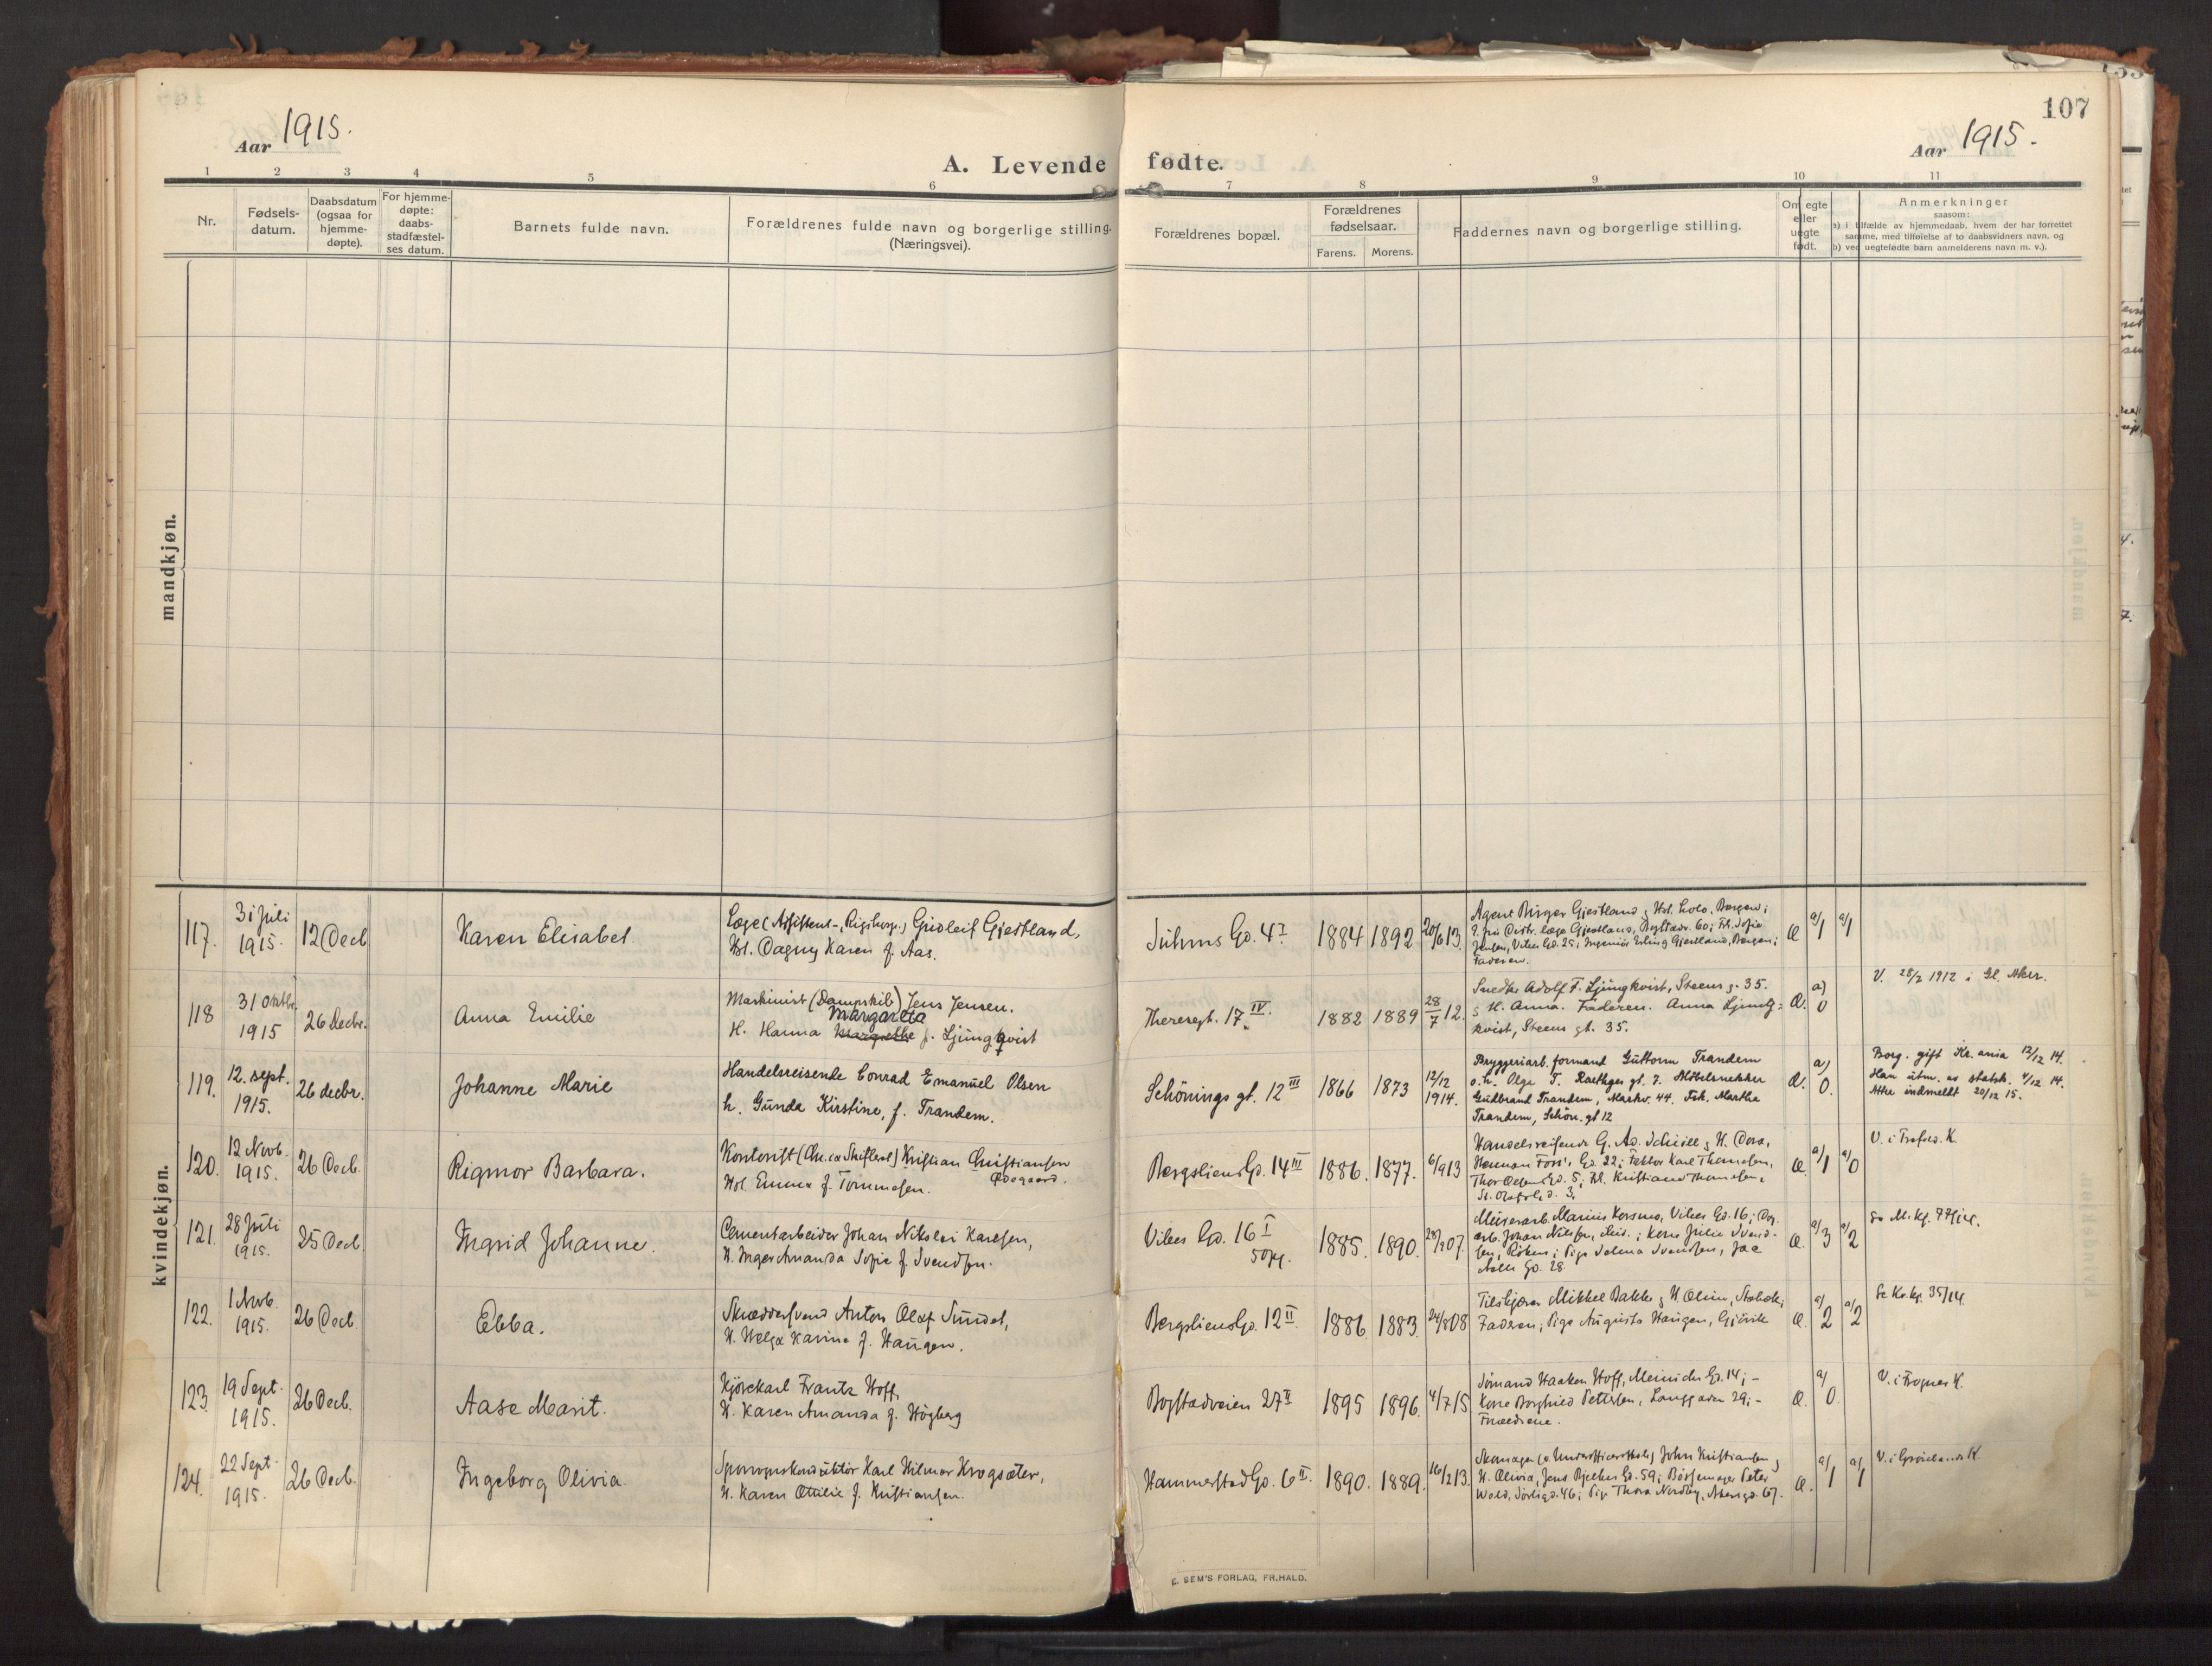 107
Aar 1915.
Aar 1915.
A. Levende fødte.
1 2 3 4 5 6 7 8 9 10 11
Nr.
Fødsels-
datum.
Daabsdatum
(ogsaa for
hjemme-
døpte).
For hjemme-
døpte:
daabs-
stadfæstel-
ses datum.
Barnets fulde navn.
Forældrenes fulde navn og borgerlige stilling.
(Næringsvei).
Forældrenes bopæl.
Forældrenes
fødselsaar.
Farens. Morens.
Faddernes navn og borgerlige stilling.
Om egte
eller
uegte
født.
Anmerkninger
saasom:
a) i tilfælde av hjemmedaab, hvem der har forrettet
samme, med tilføielse af to daabsvidners navn, og
b) ved uegtefødte barn anmelderens navn m. v.).
mandkjøn.
kvindekjøn.
117.
31 Juli
1915.
12 Decb.
Karen Elisabet.
Læge (Assistent-, Rigshosp.) Gudleif Gjestland,
Hst. Dagny Karen f. Aas.
Suhms Gd. 4 I
1884 1892 20/6 13.
Agent Birger Gjestland
Gjestland, Bogstadv. 60; Frk. Sofie
Jensen, Vibes Gd. 25; Ingeniør Erling Gjestland, Bergen;
Faderen.
a/1 a/1
118
31 Oktbr.
1915
26 Decbr.
Anna Emilie
Maskinist (Dampskib) Jens Jensen.
Margareta
H. Hanna Margrethe f. Ljungqvist
Theresegt. 17 IV.
1882 1889 28/7 12.
Snedker Adolf F. Ljungkvist, Steens g. 35.
H. Anna. Faderen. Anna Ljung-
kvist, Steens gt. 35.
a) 0
V. 28/2 1912 i Gl. Aker.
119.
12. sept.
1915.
26 decbr.
Johanne Marie
Handelsreisende Conrad Emanuel Olsen
h. Gunda Kirstine, f. Trandem.
Schönings gt. 12 III
1866 1873 12/12 1914.
Bryggeriarb. formand Guttorm Trandem
o. h. Olga T. gt. 7. Möbelsnekker
Gudbrand Trandem, Markv. 44. Frk. Martha
Trandem, Schön. gt 12
a) 0.
Borg. gift Kr.ania 12/12 14.
Han utm. av statsk. 4/12 14.
Atter indmeldt 20/12 15.
120.
12 Novb.
1915.
26 Decb.
Rigmor Barbara.
Kontorist Kristian Christiansen
Ødegaard.
Hst. Emma f. Tommesen.
Bergsliens Gd. 14 III
1886. 1877. 6/9 13
Handelsreisende G. Ad. Schiell & H. Dora,
Herman Foss's Gd. 22; Faktor Karl Thomesen,
Thor Olsens Gd. 5; Frk. Kristiane Thomesen,
St. Olafs Gd. 3.
a/1 a/0
V. i Trefold. K.
121.
28 Juli
1915.
25 Decb.
Ingrid Johanne.
Cementarbeider Johan Nikolai Karlsen,
H. Inger Amanda Sofie f. Svendsen.
Vibes Gd. 16 I
1885. 1890. 28/2 07.
Murerarb. Marius Korsmo, Vibes Gd. 16;
arb. Johan Nilsen, ibid.; Kone Julie Svend-
sen, Röken; Pige Selma Svendsen, Jac
Aalls Gd. 28
a/3 a/2
Se M. kj. 77/14.
122.
1 Novb.
1915.
26 Decb.
Ebba.
Skræddersvend Anton Olaf Sundet,
H. Helga Karine f. Haugen.
Bergsliens Gd. 12 II.
1886 1883. 24/8 08
Tilskjærer Mikkel Bakke & H.
Faderen; Pige Augusta Haugen, Gjövik
a/2 a/2
Se Kv. kj. 35/14.
123.
19 Sept.
1915.
26 Decb.
Aase Marit.
Kjörekarl Frantz Hoff,
H. Karen Amanda f. Högberg
Bogstadveien 27 II
1895 1896. 4/7 15
Sömand Haaken Hoff, Meinichs Gd. 14; -
Kone Borghild Pettersen, Langgaden 29; -
Forældrene.
a/ 0.
V. i Frogner K.
124.
22 Sept.
1915.
26 Decb.
Ingeborg Olivia.
Sporvognskonduktör Karl Hilmar Krogsæter,
H. Karen Otilie f. Kristiansen.
Hammerstad Gd. 6 II.
1890. 1889. 16/2 13.
Skomager John Kristiansen &
H. Olivia, Jens Bjelkes Gd. 59; Börsemager Peter
Wold, 46; Pige Thora Nordby, Akersgd. 67.
a/1 a/1
V. i Grönlands K.
E. SEM'S FORLAG, FR.HALD.